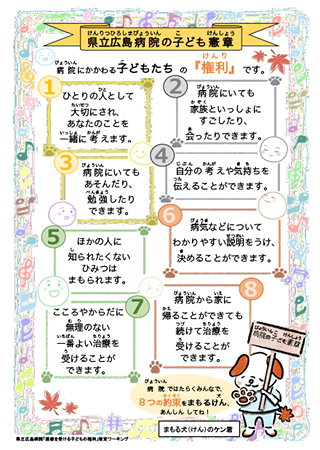 県立広島病院の子ども憲章
病院にかかわる子どもたち の『権利』です。
1
ひとりの人として
大切にされ、
あなたのことを
一緒に考えます。
2
病院にいても
家族といっしょに
すごしたり、
会ったりできます。
3
病院にいても
あそんだり、
勉強したり
できます。
4
自分の考えや気持ちを
伝えることができます。
5
ほかの人に
知られたくない
ひみつは
まもられます。
6
病気などについて
わかりやすい説明をうけ、
決めることができます。
7
こころやからだに
無理のない
一番よい治療を
受けることが
できます。
8
病院から家に
帰ることができても
続けて治療を
受けることが
できます。
病院の子ども憲章
病院 ではたらくみんなで、
8つの約束をまもるけん、
あんしん してね!
まもる犬(けん)のケン君
県立広島病院「医療を受ける子どもの権利」推定ワーキング